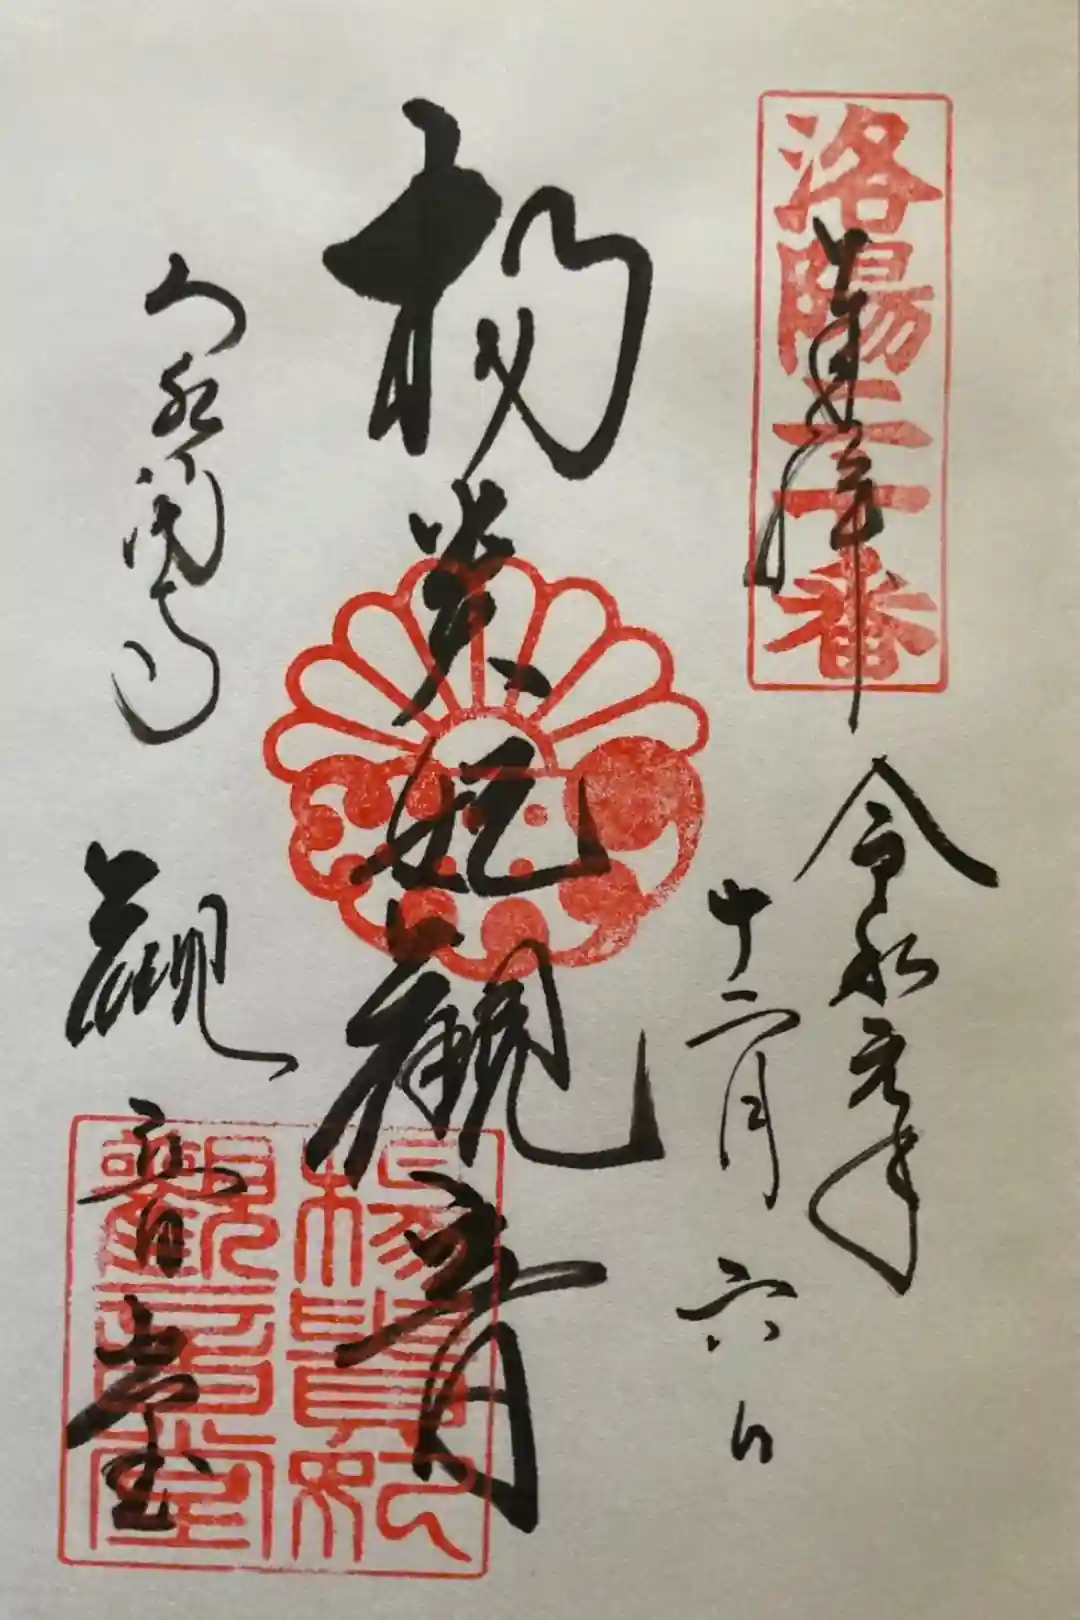 洛陽二十番
奉拝
令和元年
十二月六日
楊貴妃観音
泉涌寺
観音堂
楊貴妃
觀音堂